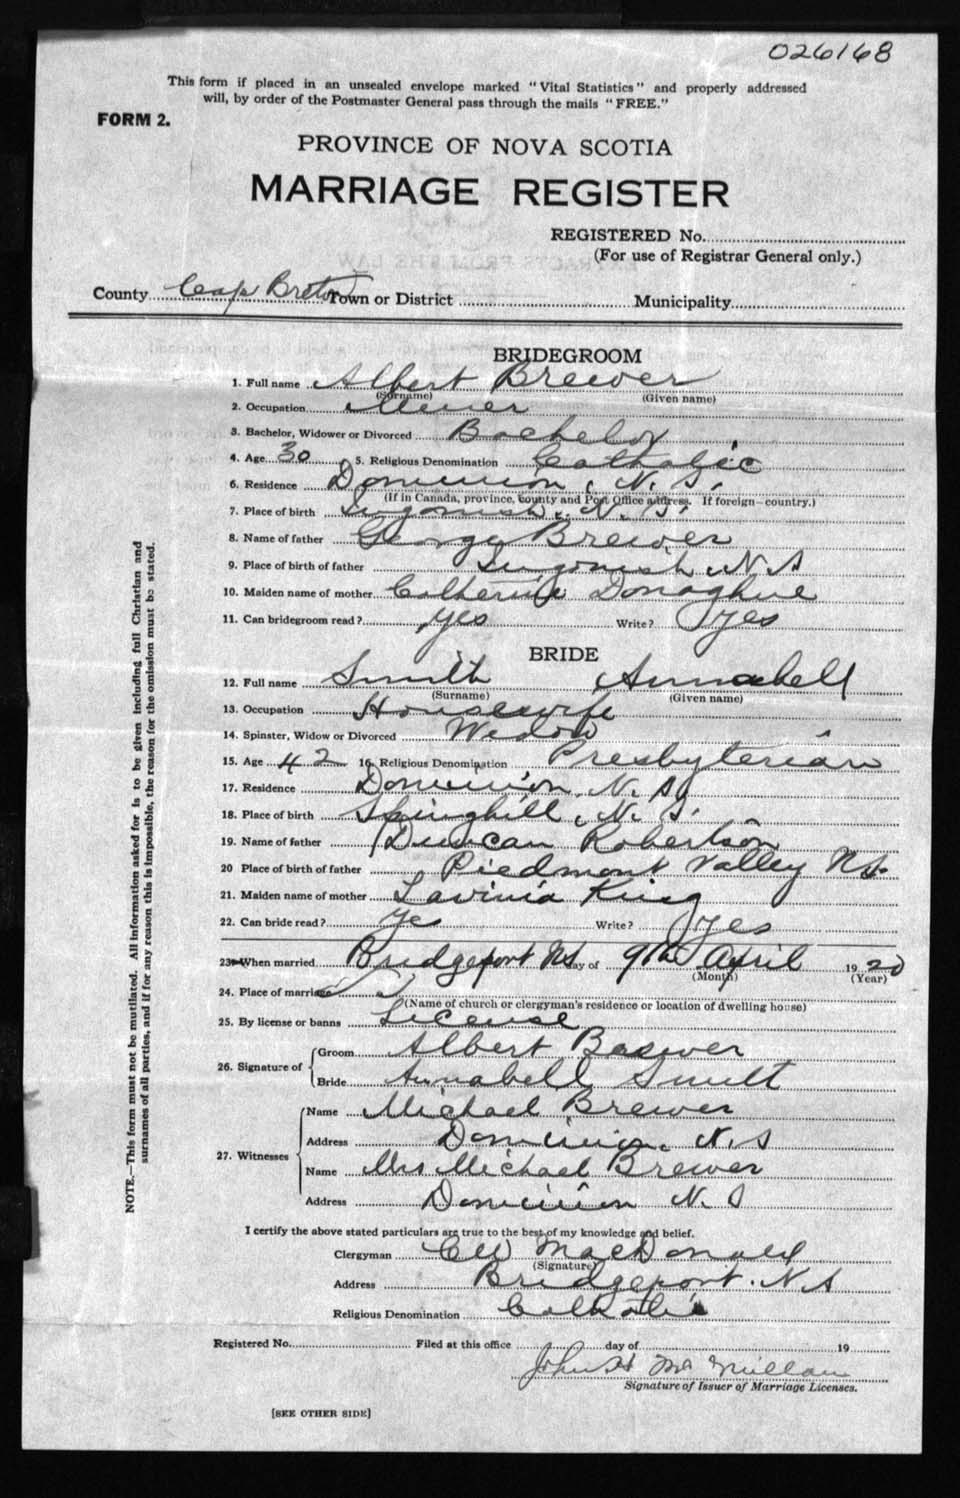 026168
This form if placed in an unsealed envelope marked "Vital Statistics" and properly addressed
will, by order of the Postmaster General pass through the mails "FREE."
FORM 2.
PROVINCE OF NOVA SCOTIA
MARRIAGE REGISTER
REGISTERED No.
(For use of Registrar General only.)
County Cape Breton Town or District Municipality
BRIDEGROOM
1. Full name Albert Brewer
(Surname) (Given name)
2. Occupation Miner
3. Bachelor, Widower or Divorced Bachelor
4. Age 30 5. Religious Denomination Catholic
6. Residence Dominion, N. S.
(If in Canada, province, county and Post Office address. If foreign—country.)
7. Place of birth Ingonish, N. S.
8. Name of father George Brewer
9. Place of birth of father Ingonish N S
10. Maiden name of mother Catherine Donaghue
11. Can bridegroom read? yes Write? yes
BRIDE
12. Full name Smith Annabell
(Surname) (Given name)
13. Occupation Housewife
14. Spinster, Widow or Divorced Widow
15. Age 42 16. Religious Denomination Presbyterian
17. Residence Dominion, N. S.
18. Place of birth Springhill, N. S.
19. Name of father Duncan Robertson
20 Place of birth of father Piedmont Valley NS.
21. Maiden name of mother Lavinia King
22. Can bride read? yes Write? yes
23. When married Bridgeport NS day of 9th April 1920
(Month) (Year)
24. Place of marriage
(Name of church or clergyman's residence or location of dwelling house)
25. By license or banns License
26. Signature of Groom Albert Brewer
Bride Annabell Smith
27. Witnesses Name Michael Brewer
Address Dominion, N. S
Name Mrs Michael Brewer
Address Dominion N. S
I certify the above stated particulars are true to the best of my knowledge and belief.
Clergyman MacDonald
(Signature)
Address Bridgeport. N S
Religious Denomination Catholic
Registered No. Filed at this office day of 19
John H McMillan
Signature of Issuer of Marriage Licenses.
[SEE OTHER SIDE]
NOTE.—This form must not be mutilated. All information asked for is to be given including full Christian and
surnames of all parties, and if for any reason this is impossible, the reason for the omission must be stated.